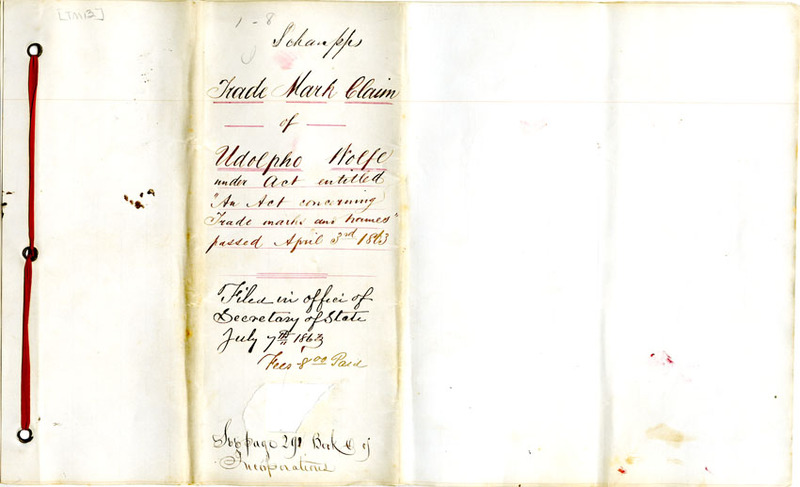 [TM13]
1 - 8
Schnapps
Trade Mark Claim
of
Udolpho Wolfe
under Act entitled
"An Act concerning
Trade marks and names"
passed April 3rd 1863
Filed in office of
Secretary of State
July 7th 1863
Fees 8 00 Paid
See page 291 Book of
Incorporations